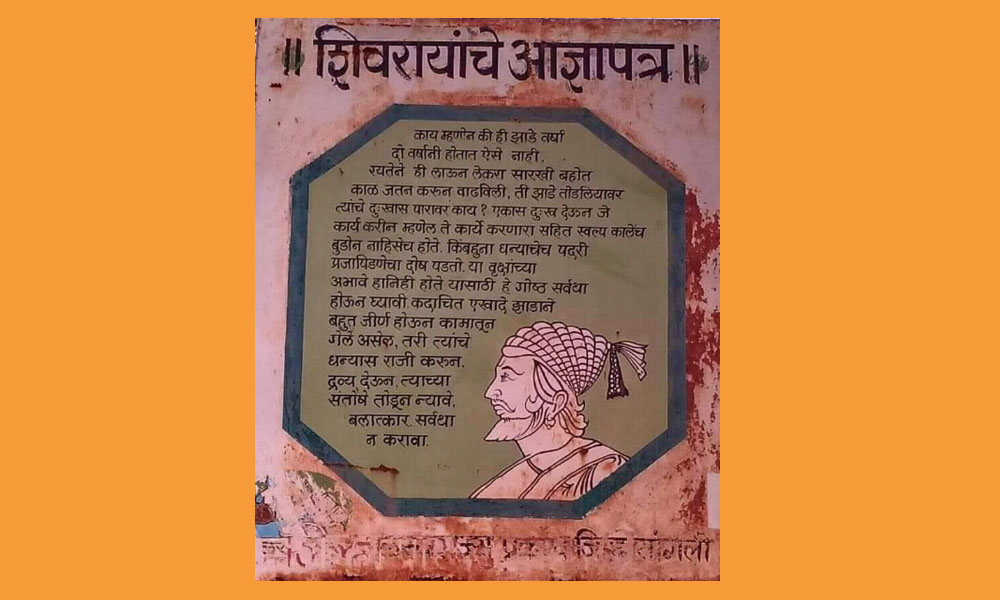 ॥ शिवरायांचे आज्ञापत्र ॥
काय म्हणोन की ही झाडे वर्षा
दो वर्षानी होतात ऐसे नाही.
रयतेने ही लाऊन लेकरा सारखी बहोत
काळ जतन करून वाढविली, ती झाडे तोडलियावर
त्यांचे दुःखास पारावर काय? एकास दुःख देऊन जे
कार्य करीन म्हणेल ते कार्ये करणारा सहित स्वल्य कालेंच
बुडोन नाहिसेच होते. किंबहुना धन्याचेच पदरी
प्रजापिडणेचा दोष पडतो. या वृक्षांच्या
अभावे हानिही होते यासाठी हे गोष्ठ सर्वथा
होऊन घ्यावी कदाचित एखादे झाडाने
बहुत जीर्ण होऊन कामातून
गेले असेल, तरी त्यांचे
धन्यास राजी करून.
द्रव्य देऊन, त्याच्या
संतोषे तोडून न्यावे.
बलात्कार सर्वथा
न करावा.
जि सांगली